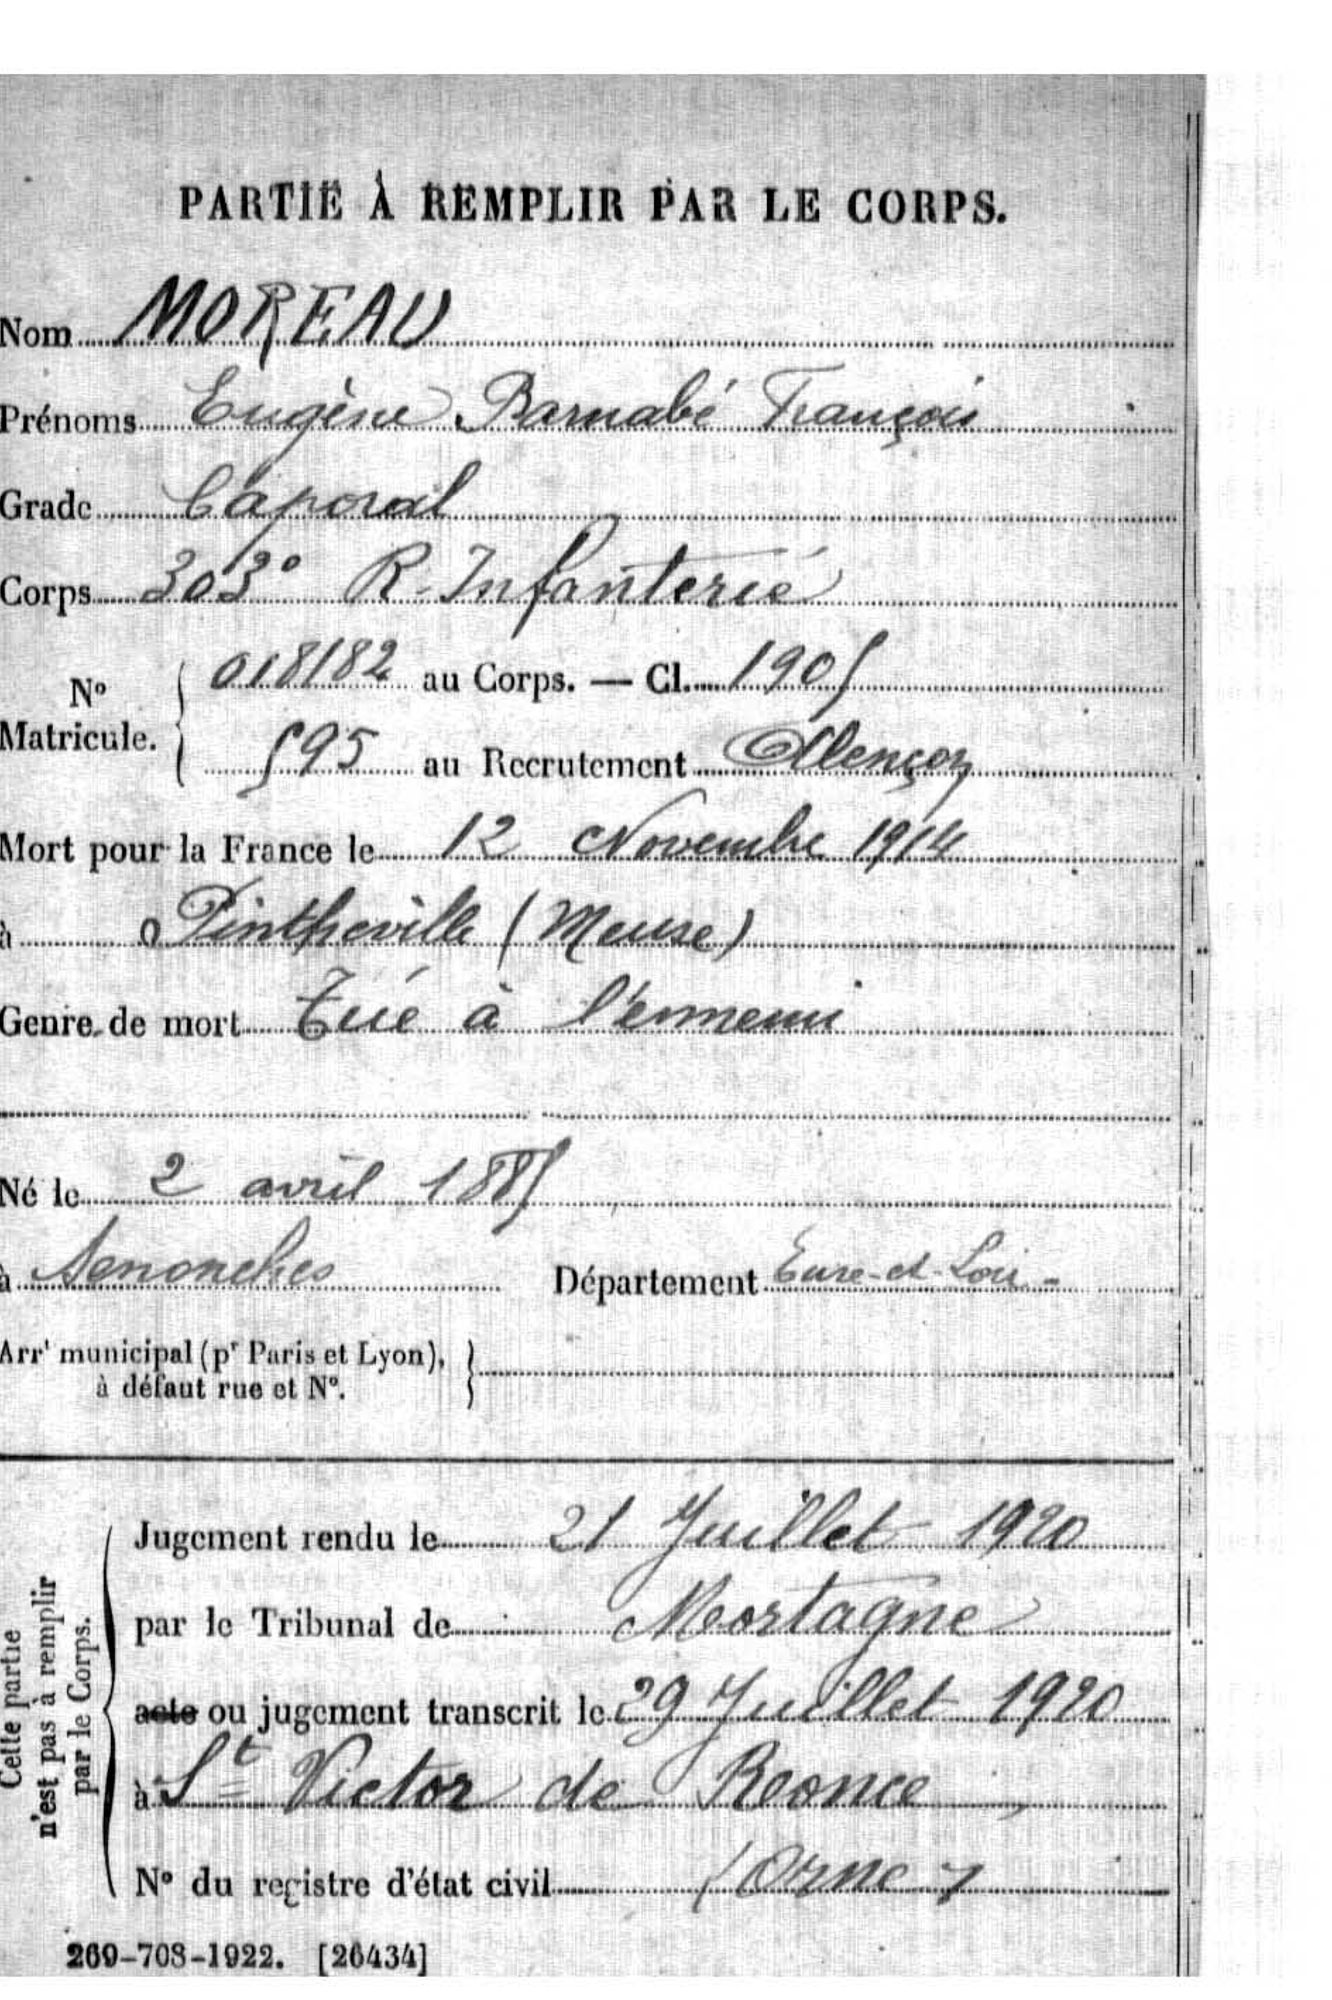 PARTIE À REMPLIR PAR LE CORPS.
Nom MOREAU
Prénoms Eugène Barnabé François
Grade Caporal
Corps 303e R. Infanterie
N° Matricule. 018182 au Corps. — Cl. 1905
595 au Recrutement Alençon
Mort pour la France le 12 Novembre 1914
à Pintheville (Meuse)
Genre de mort Tué à l'ennemi
Né le 2 avril 1885
à Senonches Département Eure-et-Loir -
Arrt municipal (pr Paris et Lyon),
à défaut rue et N°.
Cette partie
n'est pas à remplir
par le Corps.
Jugement rendu le 21 Juillet 1920
par le Tribunal de Mortagne
acte ou jugement transcrit le 29 Juillet 1920
à St Victor de Reonce
N° du registre d'état civil (Orne)
269-708-1922. [26434]